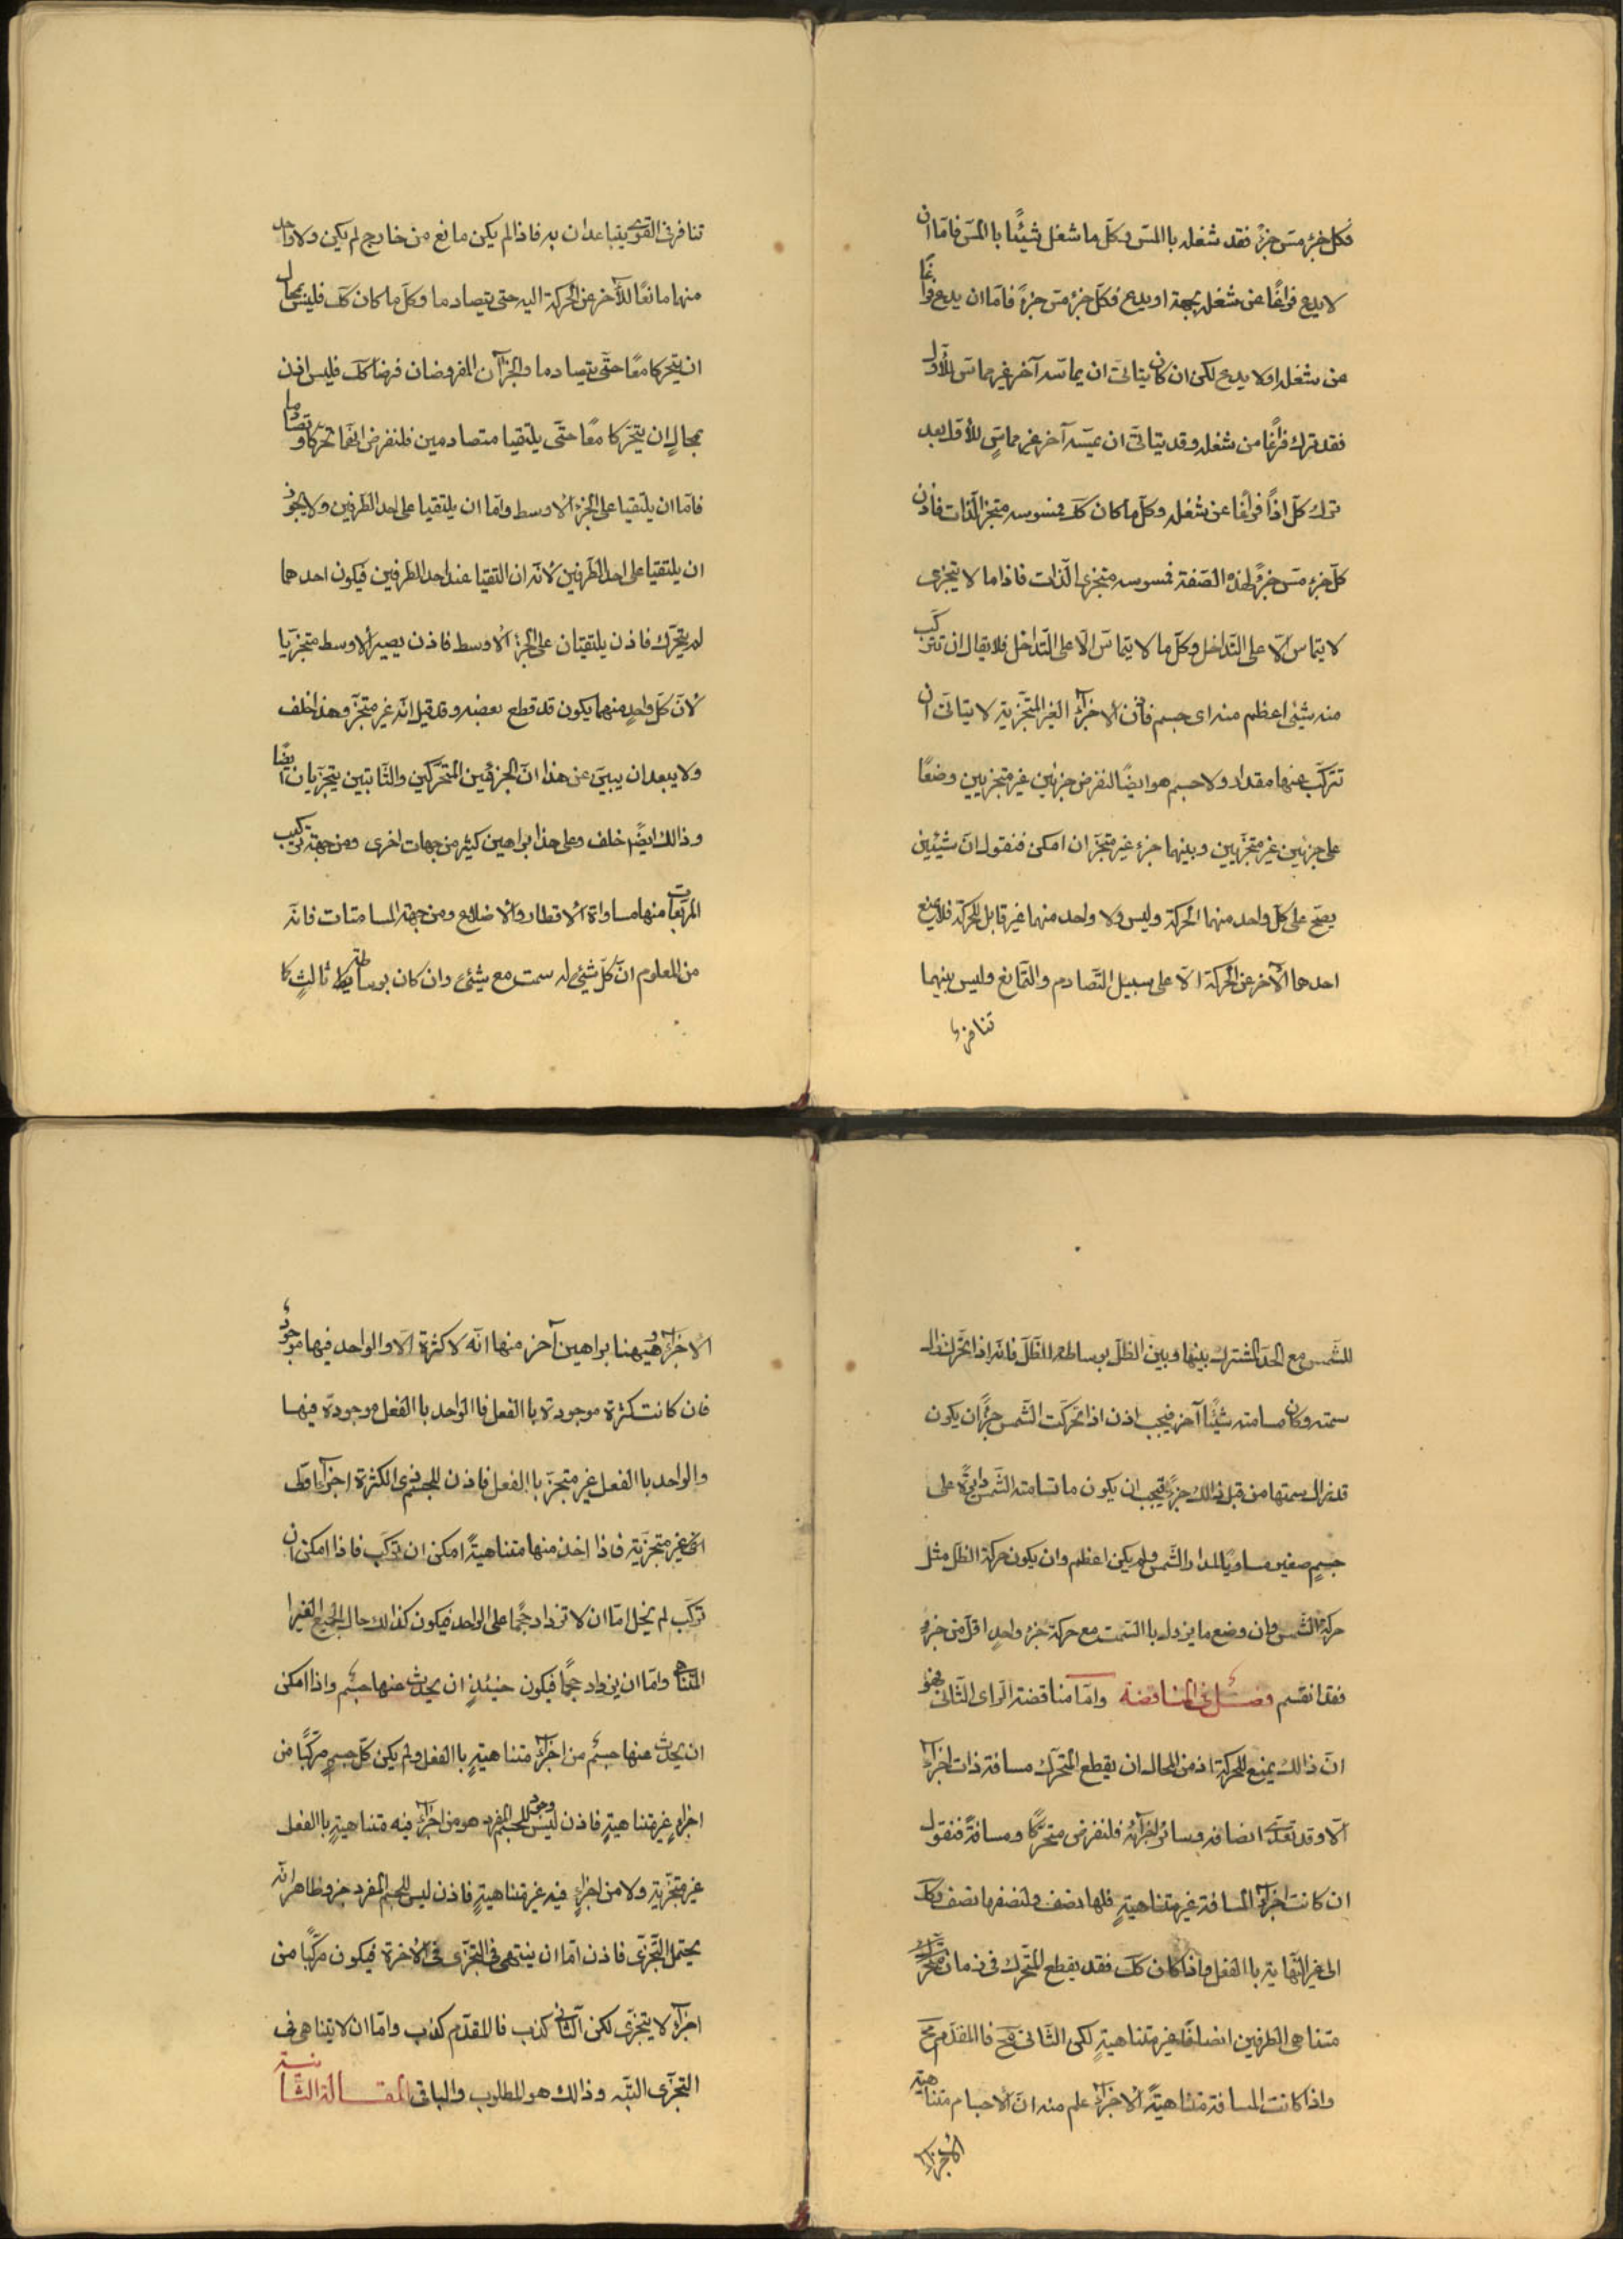 فكل جزء مس جزءً فقد شغله باالمس وكل ما شغل شيئًا باالمس فامّا ان
لا يدع فراغًا عن شغله بجهة او يدع فكل جزء مسّ جزءً فامّا ان يدع فراغًا
عن شغله او لا يدع لكن ان كان يتاتّى ان يماسّه آخر غير مماسّ للأوّل
فقد ترك فراغًا من شغله وقد يتاتّى ان يمسّه آخر غير مماسٍّ للأوّل بعد
ترك كلّ اذاً فراغًا عن شغله وكلّ ما كان كك فممسوسه متجز الذات فاذن
كلّ جزء مسّ جزءً لهذه الصّفة فممسوسه متجزى الذّات فاذا ما لا يتجزى
لا يتماس الّا على التّداخل وكلّ ما لا يتماسّ الّا على التّداخل فلا يقال ان تتركّب
منه شيئى اعظم منه اى جسم فاذن الاجزآء الغير المتجزية لا يتاتّى ان
تتركّب عنها مقدار ولا جسم هو ايضًا لنفرض جزئين غير متجزيين وضعًا
على جزئين غير متجزّيين وبينهما جزء غير متجزّ ان امكن فنقول انّ شيئين
يصحّ على كلّ واحد منهما الحركة وليس ولا واحد منهما غير قابل للحركة فلا يمنع
احدهما الآخر عن الحركة الّا على سبيل التّصادم والتّمانع وليس بينهما
تنافر
تنافر فى القوى يتباعدان به فاذا لم يكن مانع من خارج لم يكن ولا واحد
منهما مانعًا للآخر عن الحركة اليه حتى يتصادما وكلّ ما كان كك فليس بمحال
ان يتحركا معًا حتّى يتصادما والجزآن المفروضان فرضا كك فليس اذن
بمحالٍ ان يتحّركا معًا حتّى يلتقيا متصادمين فلنفرض انّهما تحّركا وتصادما
فامّا ان يلتقيا على الجزء الأوسط وامّا ان يلتقيا على احد الطّرفين ولا يجوز
ان يلتقيا على احد الطّرفين لأنّه ان التقيا عند احد الطّرفين فيكون احدهما
لم يتحرّك فاذن يلتقيان على الجزء الأوسط فاذن يصير الأوسط متجزّيا
لأنّ كلّ واحدٍ منهما يكون قد قطع بعضه وقد قيل انّه غير متجزّ وهذا خلف
ولا يبعد ان يبين عن هذا انّ الجزئين المتحرّكين والثّابتين يتجزّيان ايضًا
وذالك ايضًا خلف وعلى هذا براهين كثير من جهات اخرى ومن جهة تركيب
المربّعات منها مساواة الأقطار والأضلاع ومن جهة المسامتات فانّه
من المعلوم انّ كلّ شيئ له سمت مع شيئ وان كان بوساطة ثالثٍ كا
للشّمس مع الحدّ المشترك بينها وبين الظّل بوساطة للظّل فانّه اذا تحّرك زال
سمته وكان مسامته شيئًا آخر فيجب اذن اذا تحّركت الشّمس جزًأ ان يكون
قد زال سمتها من قبل ذالك جزءً فيجب ان يكون ما تسامته الشّمس دايرةً على
جسمٍ صغير مساويًا لمدار الشّمس ولم يكن اعظم وان يكون حركة الظّل مثل
حركة الشّمس وان وضع ما يزول باالسّمت مع حركة جزء واحدٍ اقلّ من جزءٍ
فقد انقسم فصل فى المناقضة وامّا مناقضة الرّاى الثّانى فهو
انّ ذالك يمنع للحركة اذ من المحال ان يقطع المتحرّك مسافة ذات اجزآء
الّا وقد تعدّى انصافه وسائر اجزآئه فلنفرض متحرّكًا ومسافةً فنقول
ان كانت اجزآء المسافة غير متناهيةٍ فلها نصف ولنصفها نصف وكك
الى غير النّهاية باالفعل واذا كان كك فقد يقطع المتحّرك فى زمان
متناهى الطرفين انصافًا غير متناهيةٍ لكن الثّانى مح فاالمقدّم مح
واذا كانت المسافة متناهيةً الأجزآء علم منه انّ الأجسام متناهية
الاجزآء
الأجزآء وهيهنا براهين آخر منها انّه لا كثرة الّا والواحد فيها موجودٌ
فان كانت كثرة موجودة باالفعل فاالواحد باالفعل موجودة فيها
والواحد باالفعل غير متجزّ باالفعل فاذن للجسم ذى الكثرة اجزآء اوّلى
غير متجزّية فاذا اخذ منها متناهيةً امكن ان تركّب فاذا امكن ان
تركّب لم يخل امّا ان لا تزداد حجمًا على الواحد فيكون كذالك حال الجميع الغير ا
لمتناهى وامّا ان يزداد حجمًا فيكون حينئذٍ ان يحدث عنها جسم واذا امكن
ان يحدث عنها جسمٌ من اجزآءٍ متناهيةٍ باالفعل ولم يكن كلّ جسمٍ مركّبًا من
اجزاءٍ غير متناهيةٍ فاذن ليس للجسم المفرد وجود هو من اجزآء فيه متناهيةٍ باالفعل
غير متجزّيةٍ ولا من اجزآءٍ فيه غير متناهيةٍ فاذن ليس للجسم المفرد جزو ظاهر انّه
يحتمل التّجزّى فاذن امّا ان ينتهى فى التّجزّى فى الأخرة فيكون مركّبًا من
اجزآء لا يتجزّى لكن الثّانى كذب فاالمقدّم كذب وامّا ان لا يتناهى فى
التجزّى البتّه وذالك هو المطلوب والباقى المقالة الثّانية